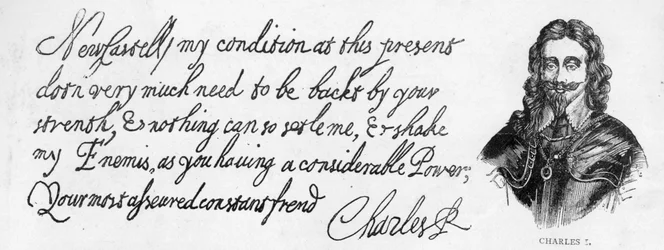 Newcastell, my condition at this present
doth very much need to be backt by your
strenth, & nothing can so setle me, & shake
my Enemis, as you having a considerable Power;
Your most asseured constant frend
Charles R
CHARLES I.